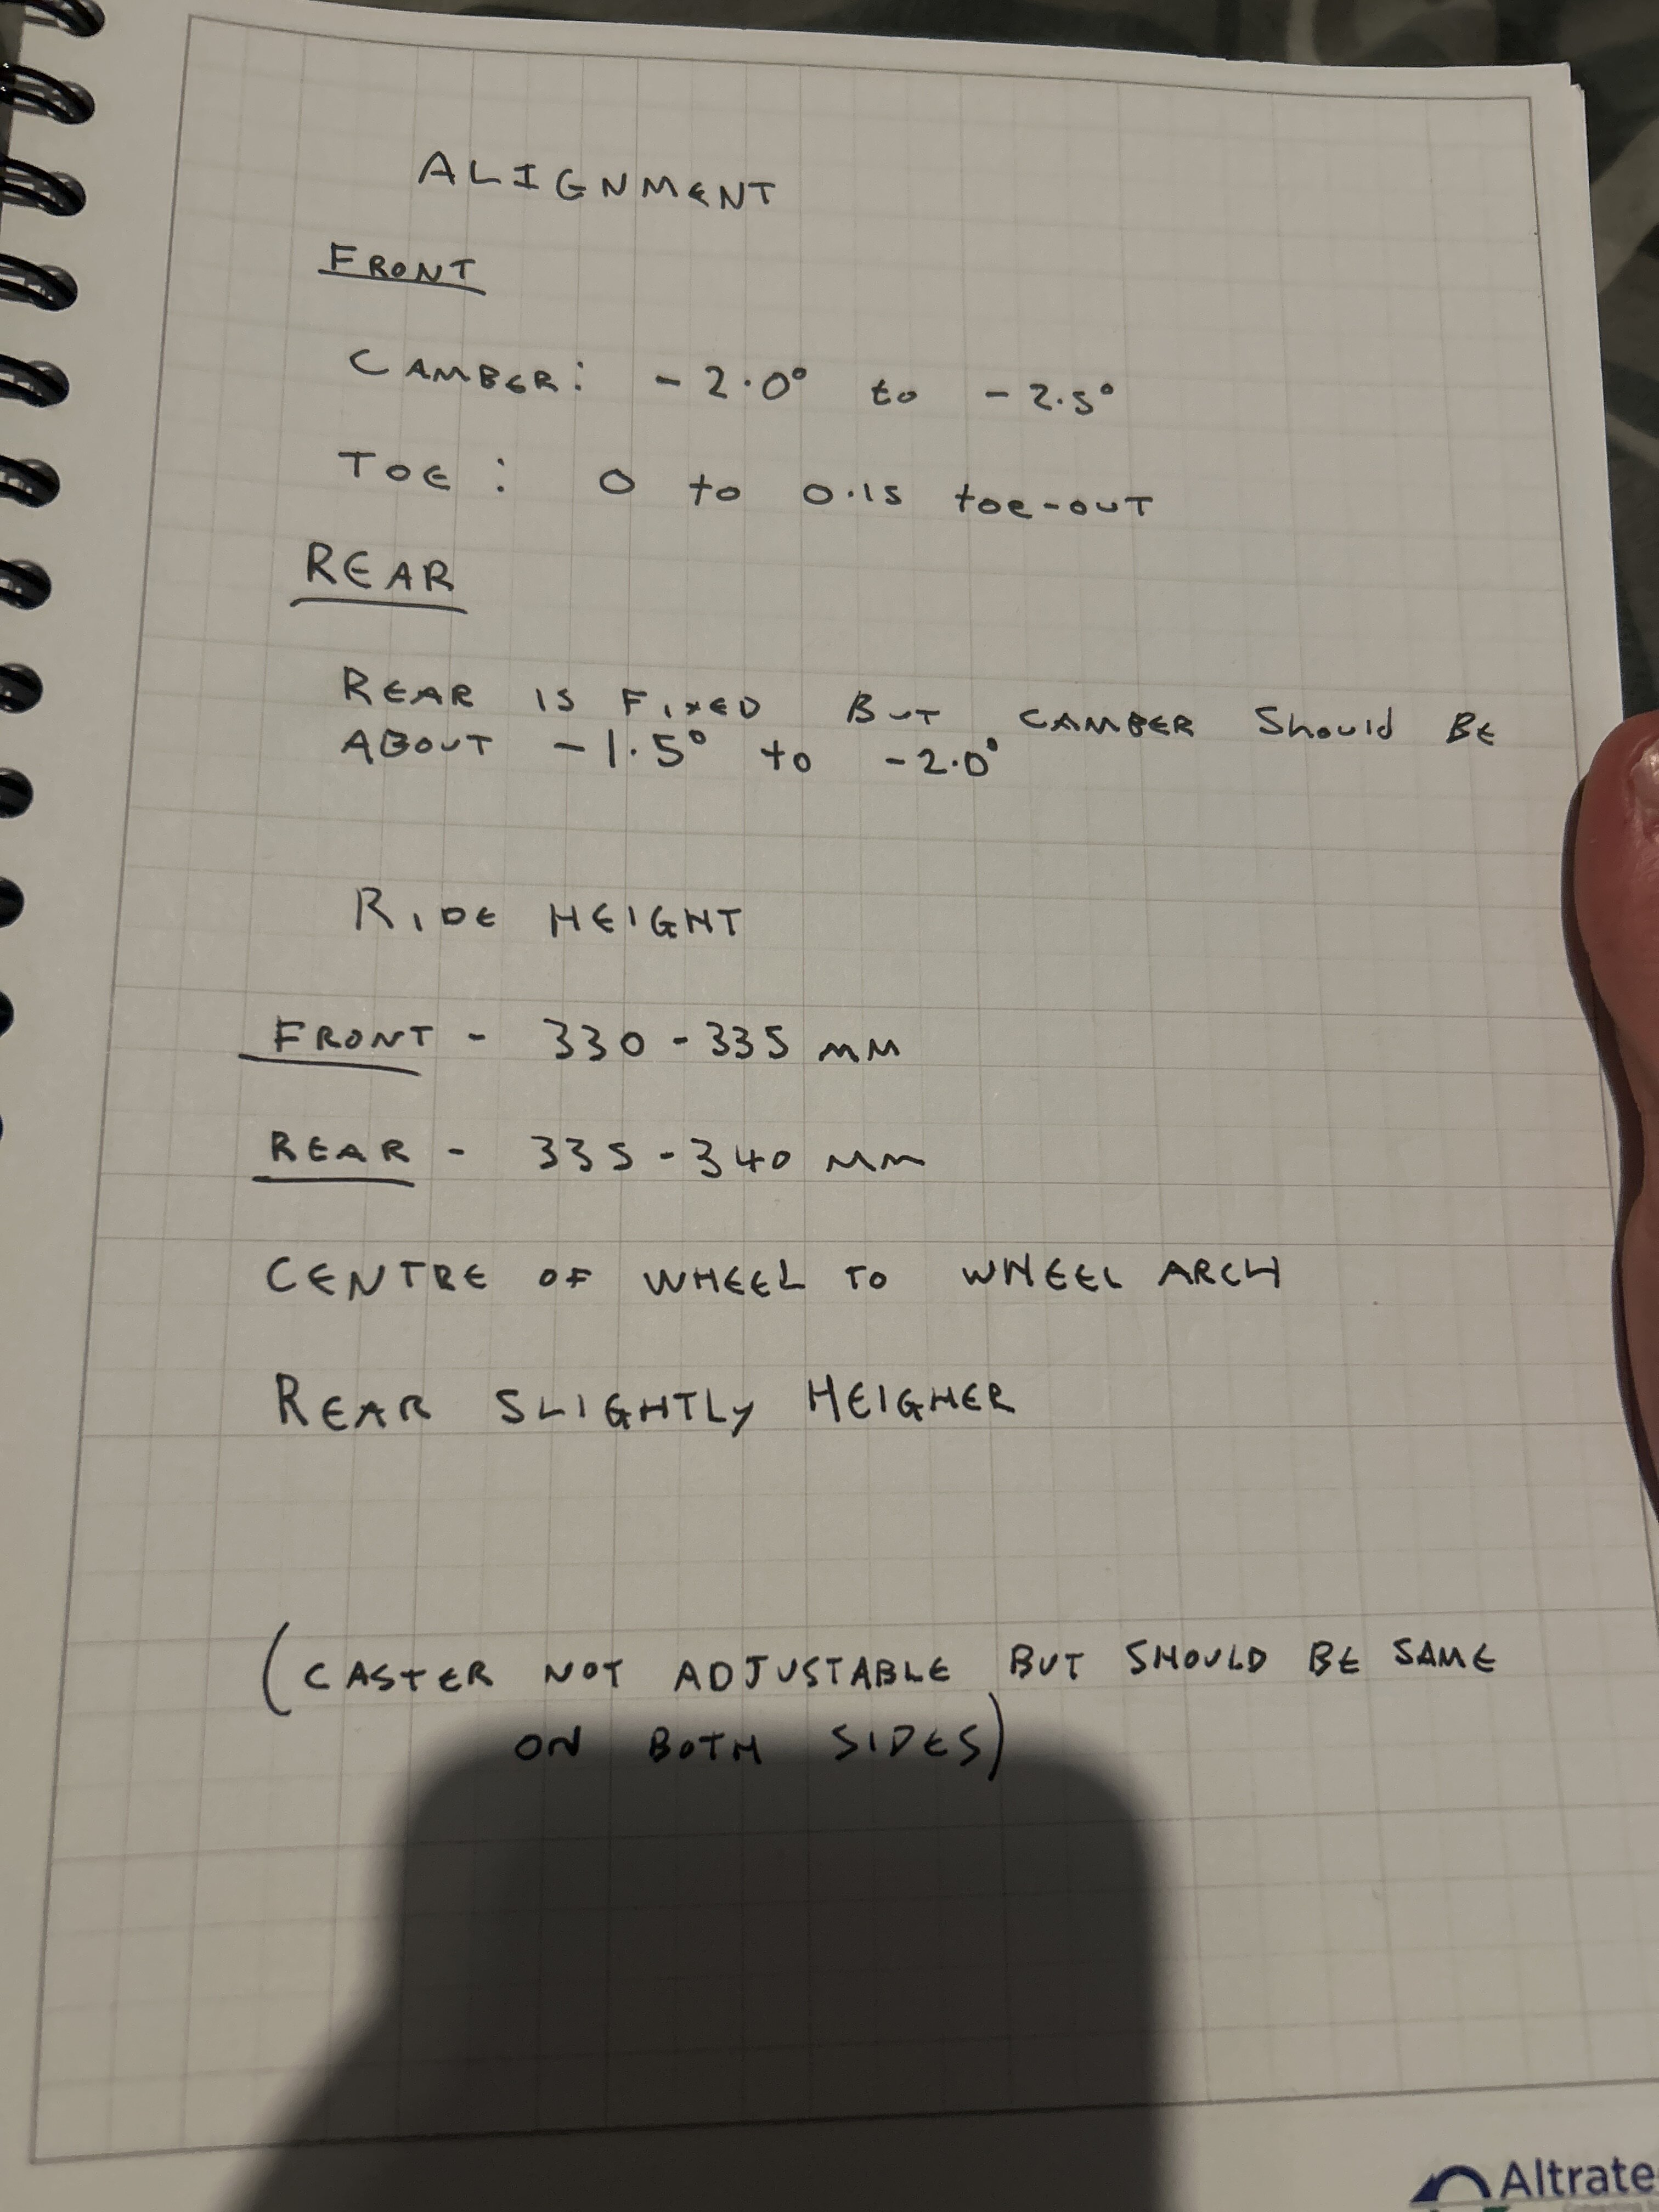 ALIGNMENT
FRONT
CAMBER: -2.0° to -2.5°
TOE: 0 to 0.15 toe-OUT
REAR
REAR IS FIXED BUT CAMBER Should BE
ABOUT -1.5° to -2.0°
RIDE HEIGHT
FRONT - 330-335 MM
REAR - 335-340 MM
CENTRE OF WHEEL TO WHEEL ARCH
REAR SLIGHTLY HEIGHER
(CASTER NOT ADJUSTABLE BUT SHOULD BE SAME
ON BOTH SIDES)
Altrate